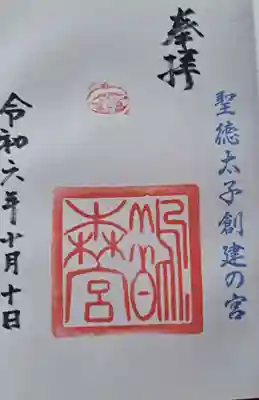 奉拝
聖徳太子創建の宮
鵲森宮
令和六年十月十日